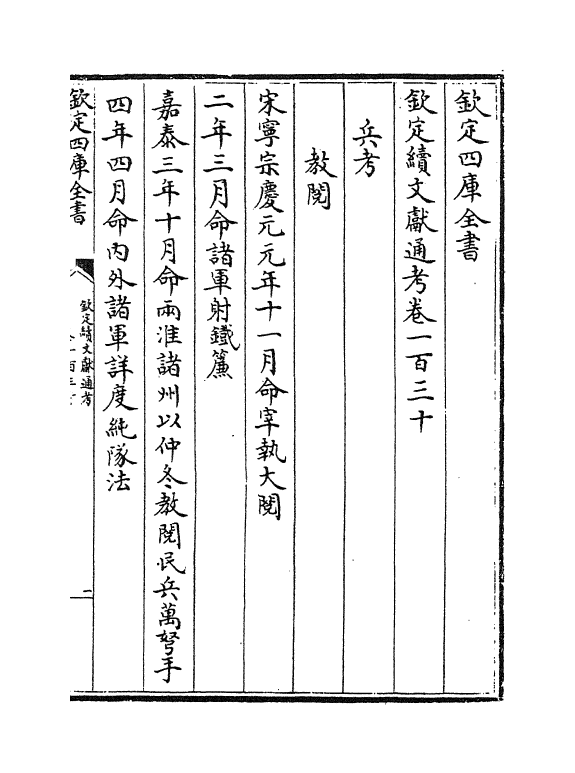 欽定四庫全書
欽定續文獻通考卷一百三十
兵考
教閱
宋寧宗慶元元年十一月命宰執大閱
二年三月命諸軍射鐵簾
嘉泰三年十月命兩淮諸州以仲冬教閱民兵萬弩手
四年四月命内外諸軍詳度純隊法
欽定四庫全書
欽定續文獻通考